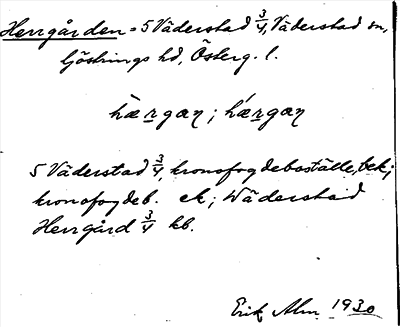 Herrgården = 5 Väderstad 3/4, Väderstad sn,
Göstrings hd, Österg. l.
hæ̀rgan; hǽrgan
5 Väderstad 3/4, kronofogdeboställe, bek;
kronofogdeb. ek; Wäderstad
Herrgård 3/4 kb.
Erik Alm 1930